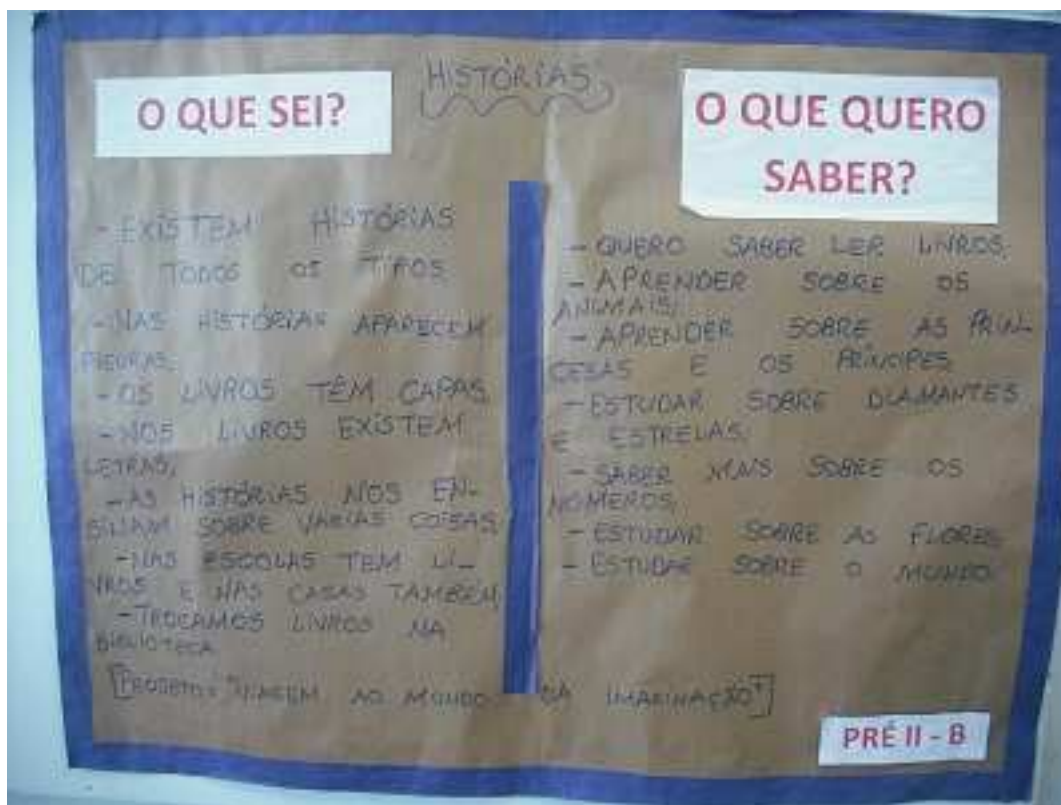 HISTÓRIAS
O QUE SEI?
- EXISTEM HISTÓRIAS
DE TODOS OS TIPOS
- NAS HISTÓRIAS APARECEM
FIGURAS;
- OS LIVROS TÊM CAPAS
- NOS LIVROS EXISTEM
LETRAS;
- AS HISTÓRIAS NOS EN-
SINAM SOBRE VÁRIAS COISAS
- NAS ESCOLAS TEM LI-
VROS E NAS CASAS TAMBÉM
- TROCAMOS LIVROS NA
BIBLIOTECA
O QUE QUERO
SABER?
- QUERO SABER LER LIVROS;
- APRENDER SOBRE OS
ANIMAIS;
- APRENDER SOBRE AS PRIN-
CESAS E OS PRÍNCIPES
- ESTUDAR SOBRE DIAMANTES
E ESTRELAS;
- SABER MAIS SOBRE OS
NÚMEROS;
- ESTUDAR SOBRE AS FLORES
- ESTUDAR SOBRE O MUNDO
[PROJETO: "VIAGEM AO MUNDO DA IMAGINAÇÃO"]
PRÉ II - B